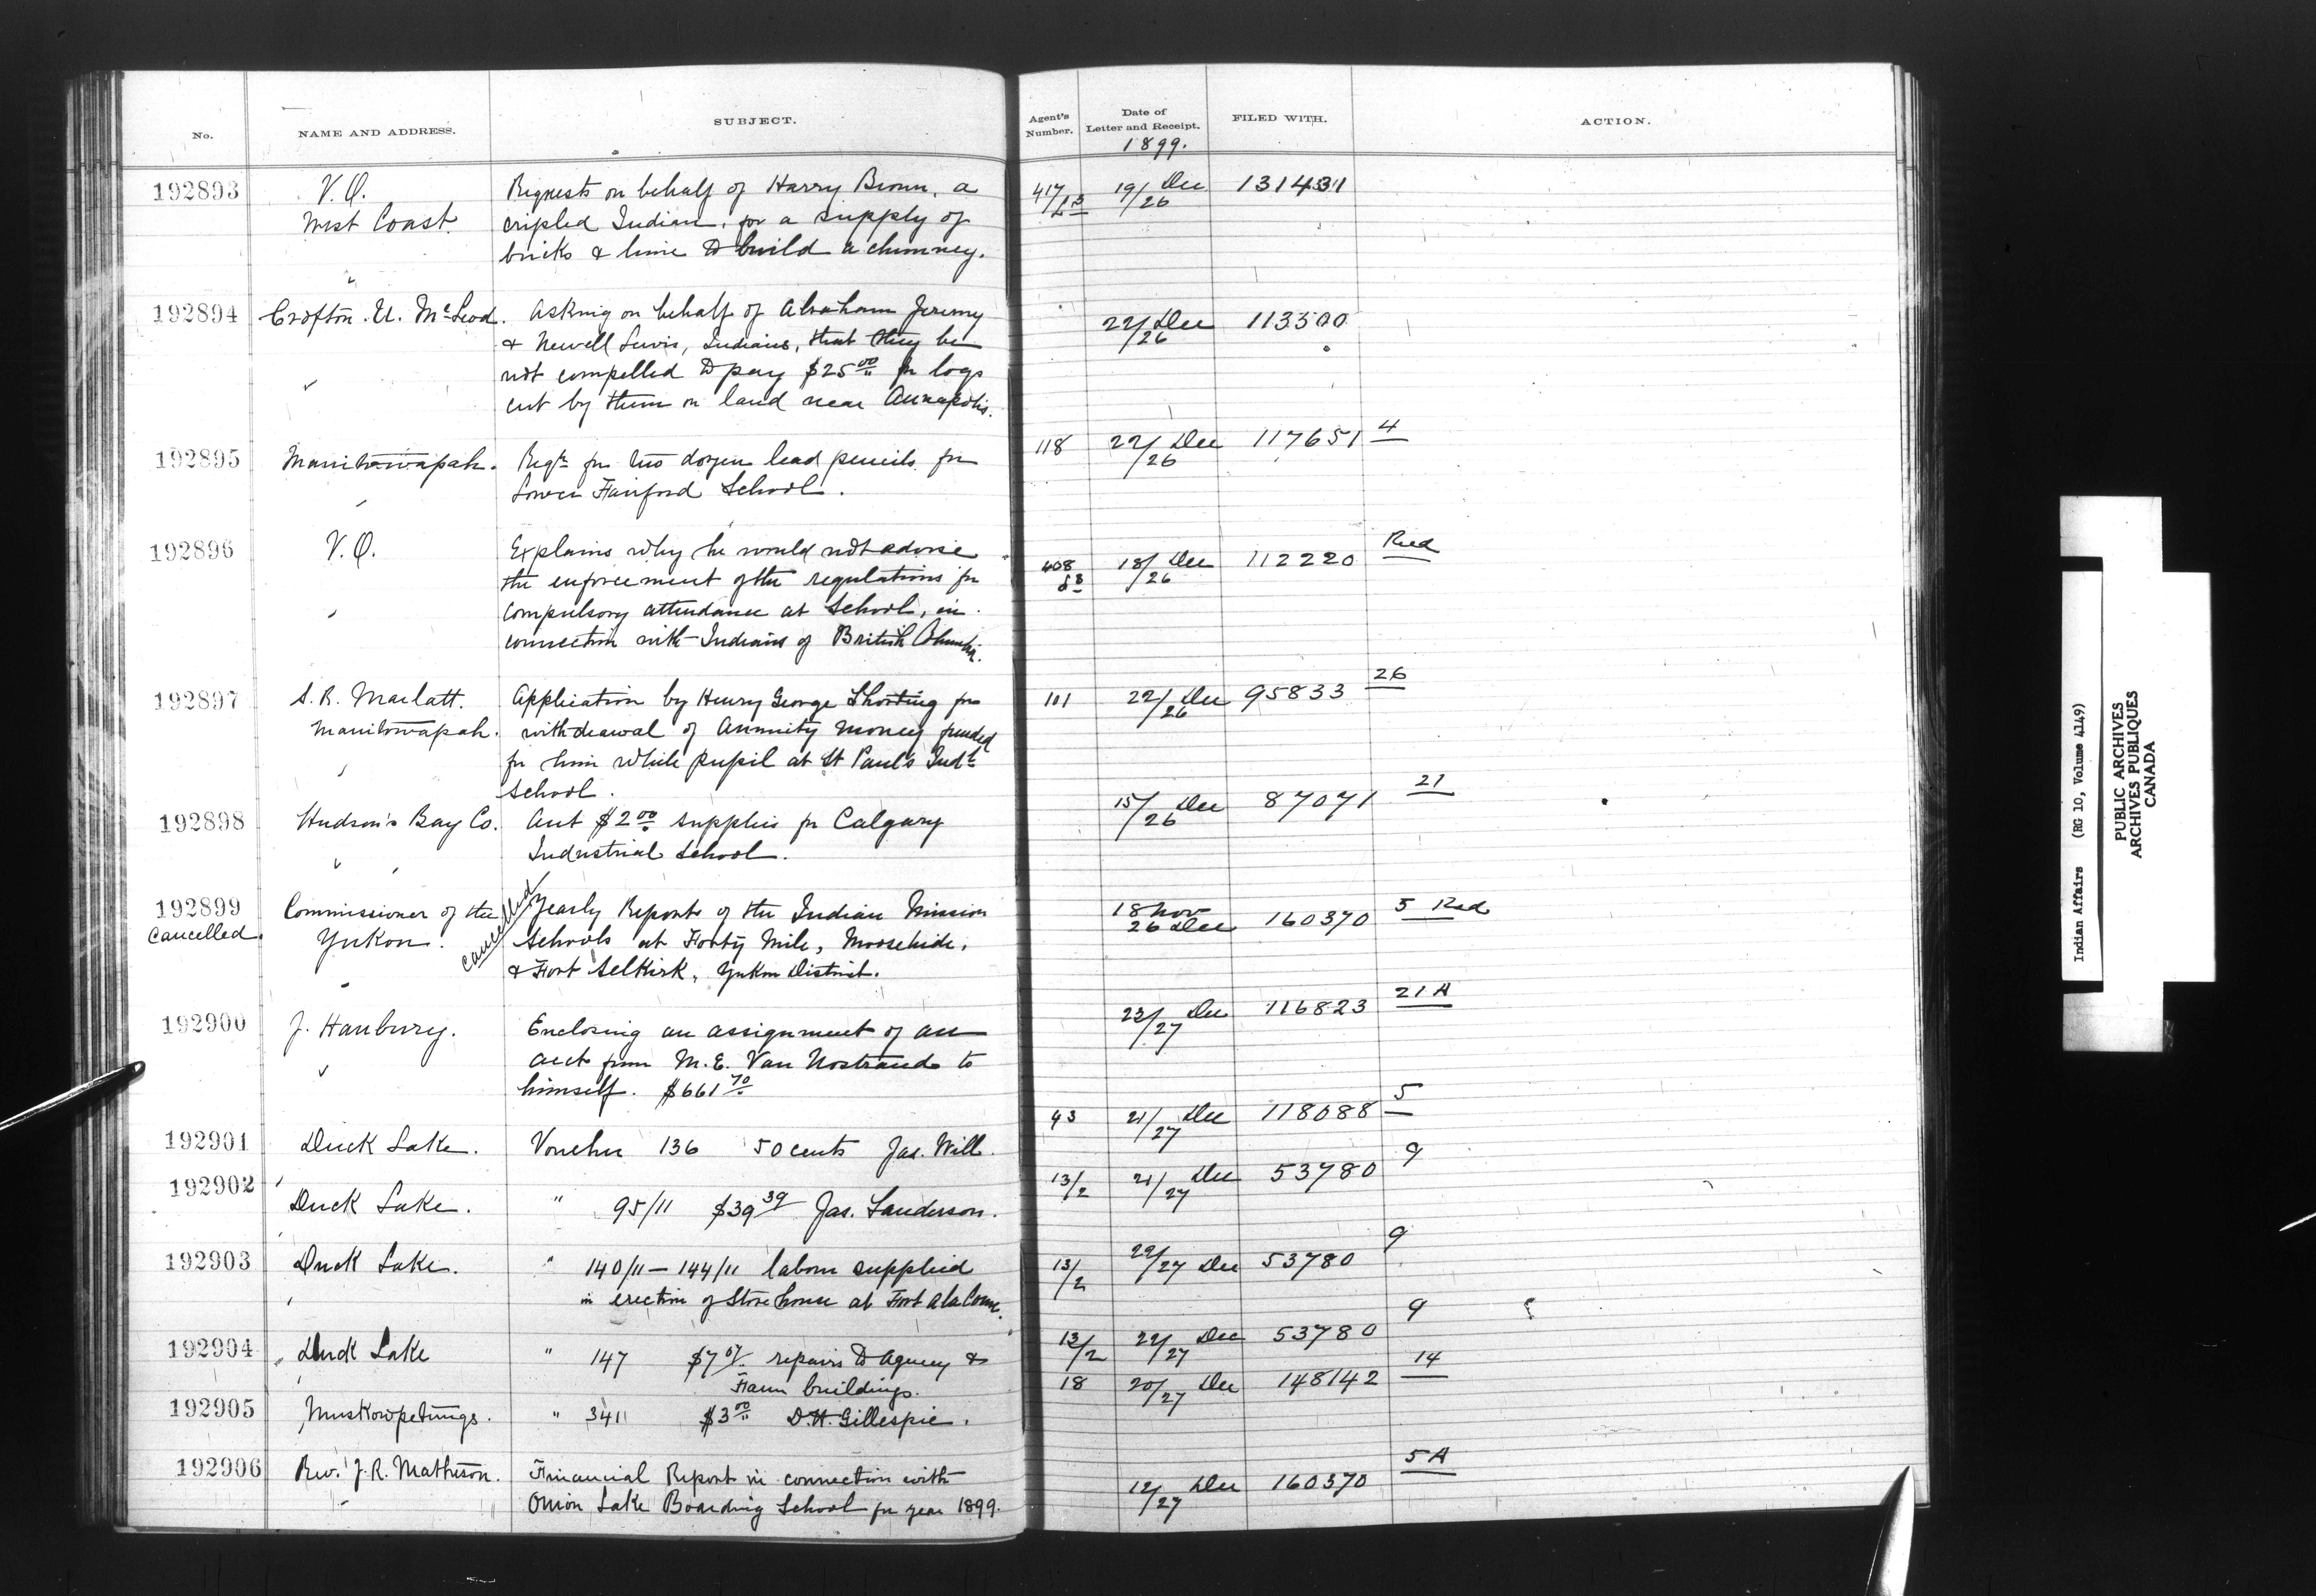 No. NAME AND ADDRESS. SUBJECT. Agent's Number. Date of Letter and Receipt. FILED WITH. ACTION.
1899.
192893 V.O. Requests on behalf of Harry Brown, a 417/ 19/26 Dec 131431
West Coast cripled Indian, for a supply of
bricks & lime to build a chimney.
192894 Crofton U. McLeod. Asking on behalf of Abraham Jeremy 22/26 Dec 113500
& Newell Lewis, Indians, that they be
not compelled to pay $25 00 for logs
cut by them on land near Annapolis.
192895 Manitowapah. Reqn for two dozen lead pencils for 118 22/26 Dec 117651 4
Lower Fairford School.
192896 V.O. Explains why he would not advise 408 18/26 Dec 112220 Red
the enforcement of the regulations for
compulsory attendance at School, in
connection with Indians of British Columbia.
192897 S.R. Marlatt. Application by Henry George Shorting for 101 22/26 Dec 95833 26
Manitowapah. withdrawal of Annuity money funded
for him while pupil at St Paul's Indl
School.
192898 Hudson's Bay Co. Acct $2 00 supplies for Calgary 15/26 Dec 87071 21
Industrial School.
192899 Commissioner of the cancelled Yearly Reports of the Indian Mission 18 Nov 26 Dec 160370 5 Red
Cancelled. Yukon. Schools at Forty Mile, Moosehide,
& Fort Selkirk, Yukon District.
192900 J. Hanbury. Enclosing an assignment of an 23/27 Dec 116823 21A
acct from M.E. Van Nostrand to
himself. $661 70
192901 Duck Lake. Voucher 136 50 cents Jas. Will. 43 21/27 Dec 118088 5
192902 Duck Lake. " 95/11 $39 39 Jas. Sanderson. 13/2 21/27 Dec 53780 9
192903 Duck Lake. " 140/11 – 144/11 labour supplied 13/2 22/27 Dec 53780 9
in erection of Store house at Fort ala Corne.
192904 Duck Lake " 147 $7 07 repairs to Agency & 13/2 22/27 Dec 53780 9
Farm buildings.
192905 Muskowpetungs. " 3411 $3 00 D.H. Gillespie. 18 20/27 Dec 148142 14
192906 Rev. J.R. Matheson. Financial Report in connection with 12/27 Dec 160370 5A
Onion Lake Boarding School for year 1899.
Indian Affairs (RG 10, Volume 4149)
PUBLIC ARCHIVES
ARCHIVES PUBLIQUES
CANADA